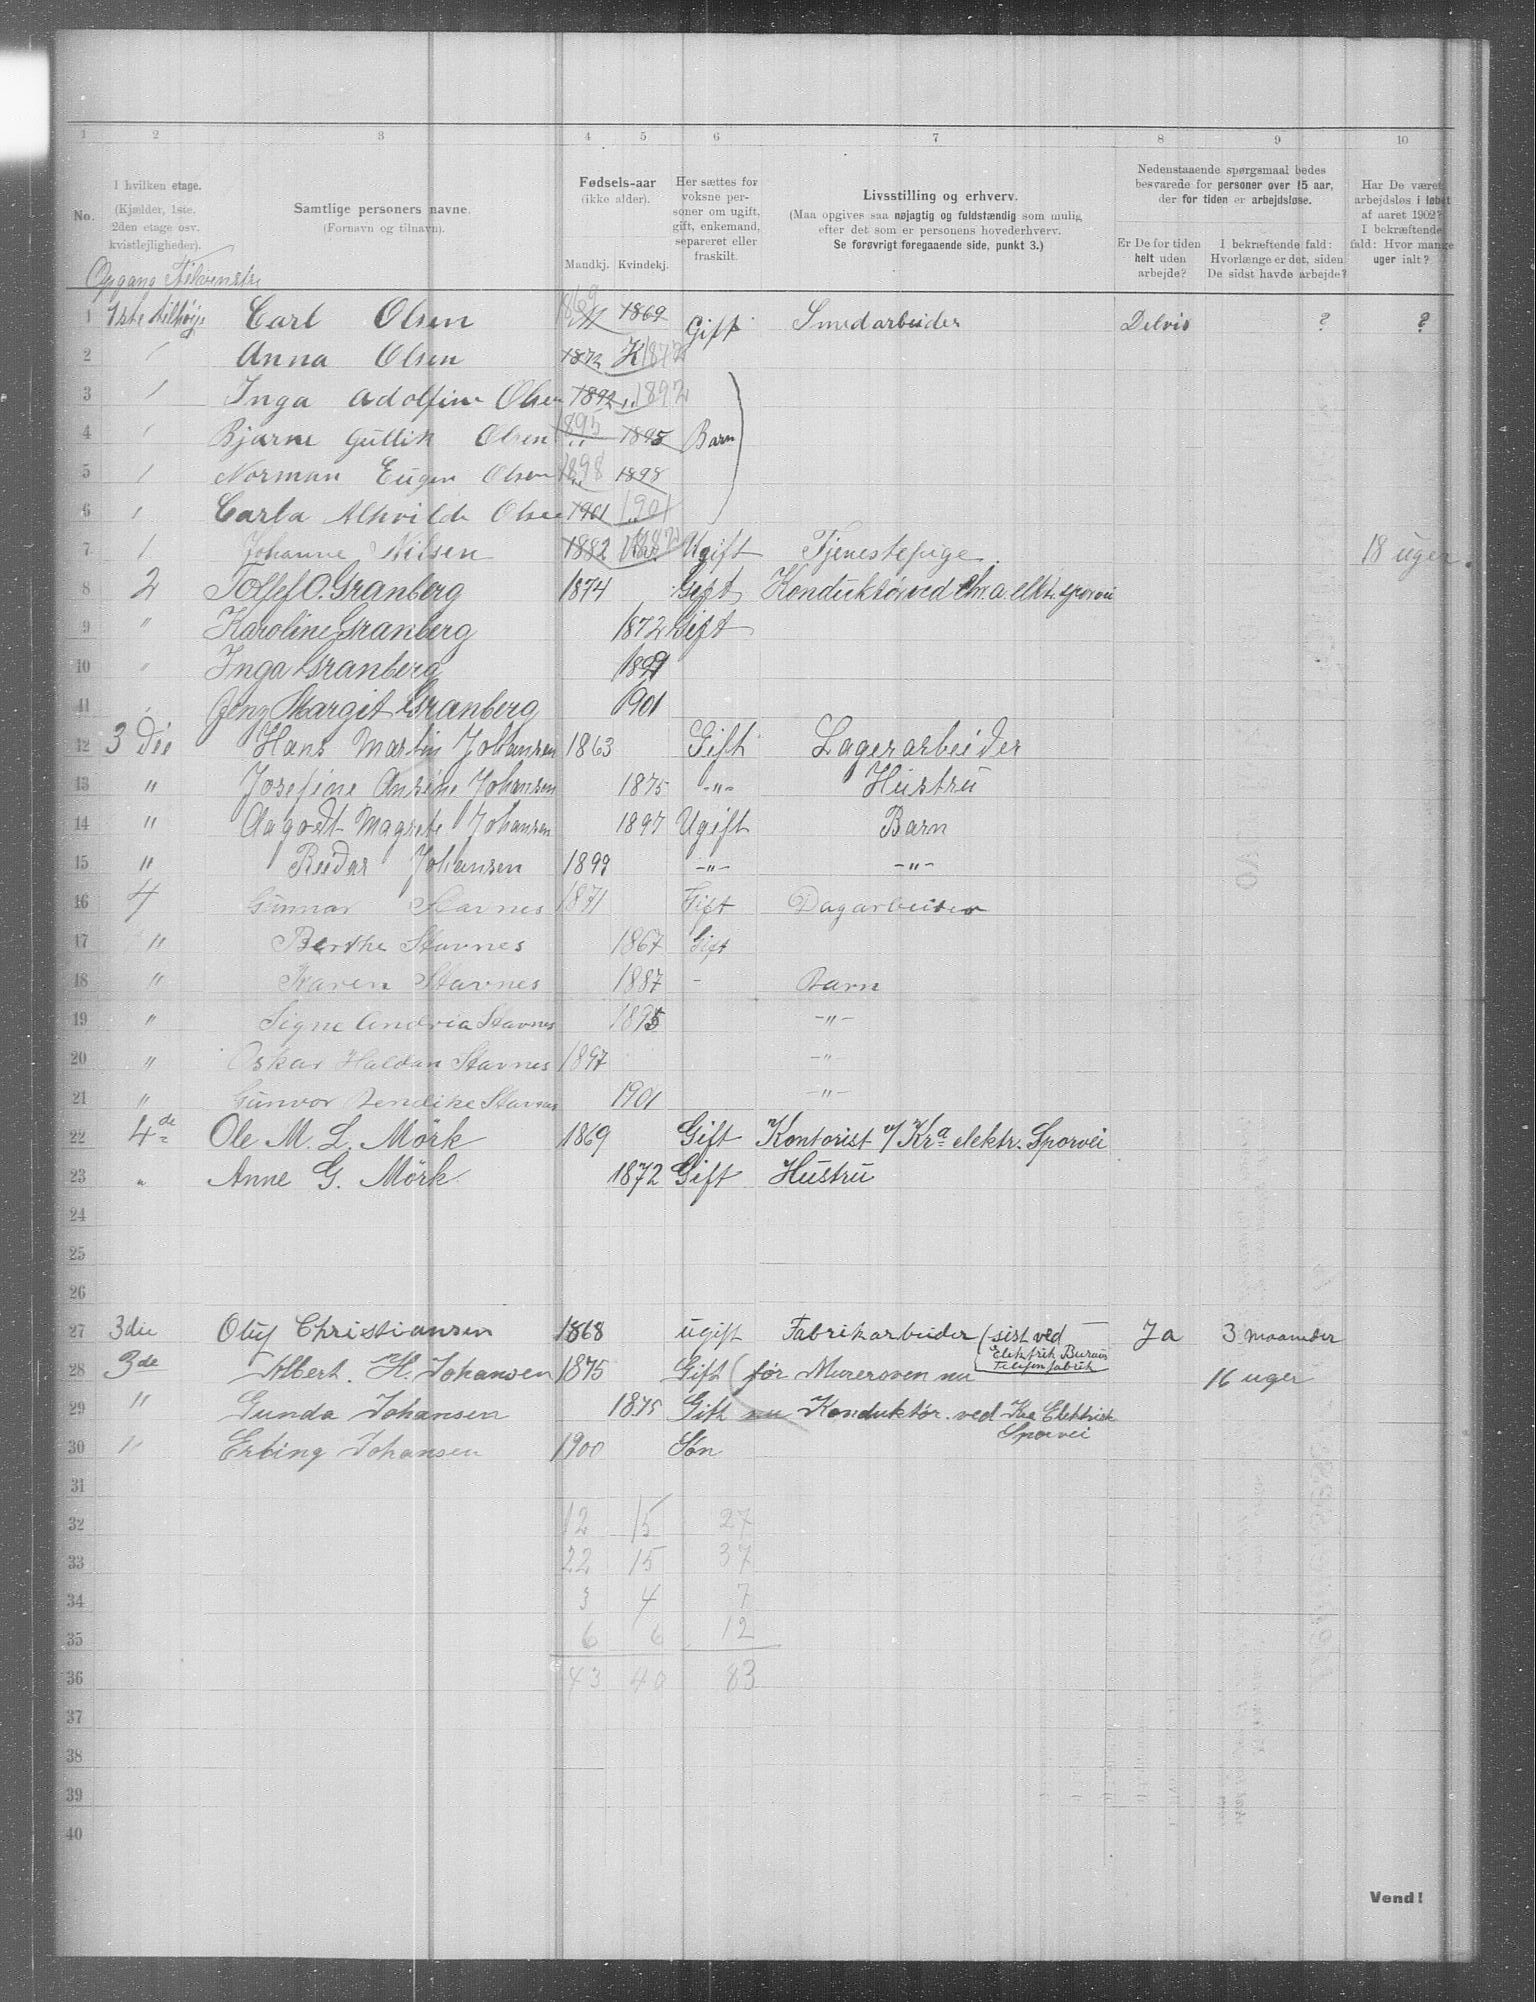 1 2 3 4 5 6 7 8 9 10
No.
I hvilken etage.
(Kjælder, 1ste.
2den etage osv.
kvistlejligheder).
Samtlige personers navne.
(Fornavn og tilnavn).
Fødsels-aar
(ikke alder).
Mandkj. Kvindekj.
Her sættes for
voksne per-
soner om ugift,
gift, enkemand,
separeret eller
fraskilt.
Livsstilling og erhverv.
(Maa opgives saa nøjagtig og fuldstændig som mulig
efter det som er personens hovederhverv.
Se forøvrigt foregaaende side, punkt 3.)
Nedenstaaende spørgsmaal bedes
besvarede for personer over 15 aar,
der for tiden er arbejdsløse.
Er De for tiden
helt uden
arbejde?
I bekræftende fald:
Hvorlænge er det, siden
De sidst havde arbejde?
Har De været
arbejdsløs i løbet
af aaret 1902?
I bekræftende
fald: Hvor mange
uger ialt?
Opgang
1 1ste Carl Olsen 1869 1869 Gift Smedarbeider Delvis ? ?
2 " Anna Olsen 1872 K 1872
3 " Inga Adolfine Olsen 1892 1892
4 " Bjarne Olsen 1895 1895 Barn
5 " Norman Eugen Olsen 1898 1898
6 " Carla Alhvilde Olsen 1901 1901
7 1. Johanne Nilsen 1882 1882 Ugift Tjenestepige 18 uger.
8 2 Tollef O. Granberg 1874 Gift Konduktør ved Chr.a. elkt. sporvei
9 " Karoline Granberg 1872 Gift
10 " Inga Granberg 1899
11 Margit Granberg 1901
12 3 Die Hans Martin Johansen 1863 Gift Lagerarbeider
13 " Josefine Johansen 1875 -"- Hustru
14 " Aagodt Magrete Johansen 1897 Ugift Barn
15 " Reidar Johansen 1899 -"- -"-
16 4 Gunnar Stavnes 1871 Gift Dagarbeider
17 " Berthe Stavnes 1867 Gift
18 " Karen Stavnes 1887 - Barn
19 " Signe Andria Stavnes 1895 -"-
20 " Oskar Haldan Stavnes 1897 -"-
21 " Gunvor Stavnes 1901 -"-
22 4de Ole M. L. Mörk 1869 Gift Kontorist v/ Kra elektr. Sporvei
23 " Anne G. Mörk. 1872 Gift Hustru
24
25
26
27 3die Oluf Christiansen 1868 ugift Fabrikarbeider (sist ved Ja 3 maaneder
Elektrik Bureau
Telefonfabrik
28 3de Albert. H. Johansen 1875 Gift (før Murersven nu 16 uger
29 " Gunda Johansen 1875 Gift nu Konduktør ved Kra Elektrisk
Sporvei
30 " Erling Johansen 1900 Søn
31
32 12 15 27
33 22 15 37
34 3 4 7
35 6 6 12
36 43 40 83
37
38
39
40
Vend!